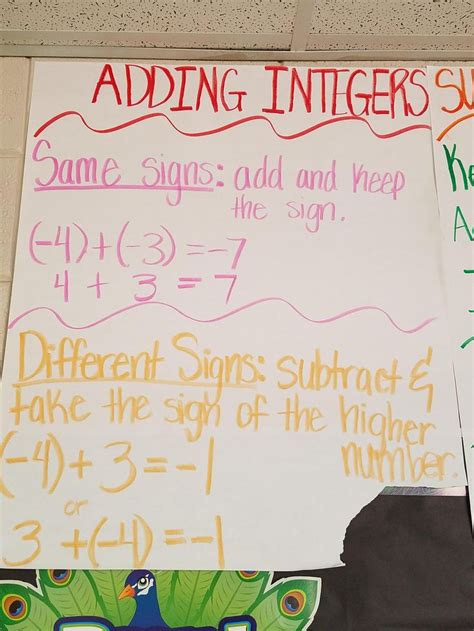 ADDING INTEGERS
Same signs: add and keep
the sign.
(-4)+(-3)=-7
4 + 3 = 7
Different Signs: subtract &
take the sign of the higher
number.
(-4)+3=-1
or
3 +(-4)=-1
SU
Ke
A